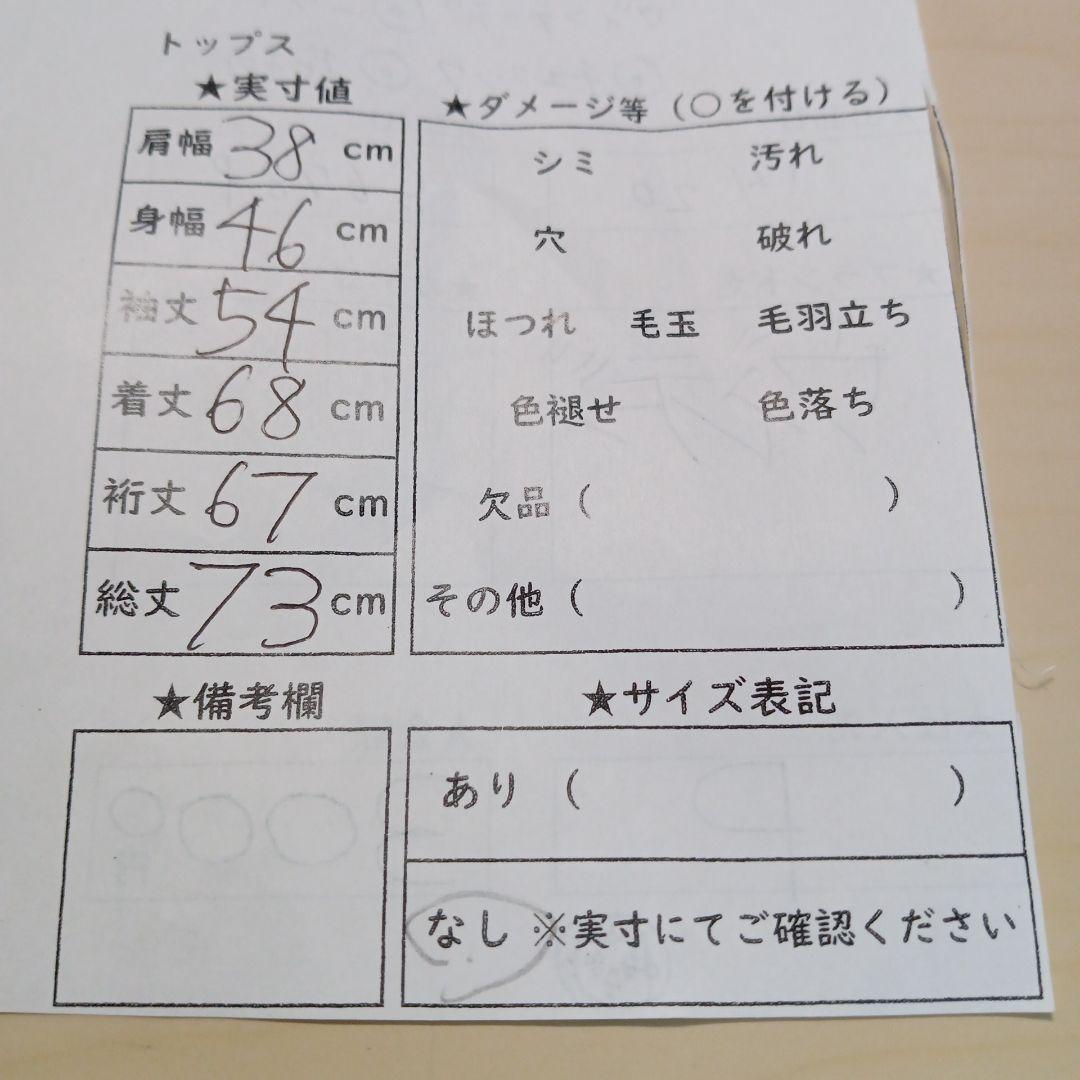 トップス
★実寸値
肩幅 38 cm
身幅 46 cm
袖丈 54 cm
着丈 68 cm
裄丈 67 cm
総丈 73 cm
★ダメージ等（○を付ける）
シミ 汚れ
穴 破れ
ほつれ 毛玉 毛羽立ち
色褪せ 色落ち
欠品（ ）
その他（ ）
★備考欄
★サイズ表記
あり（ ）
なし ※実寸にてご確認ください